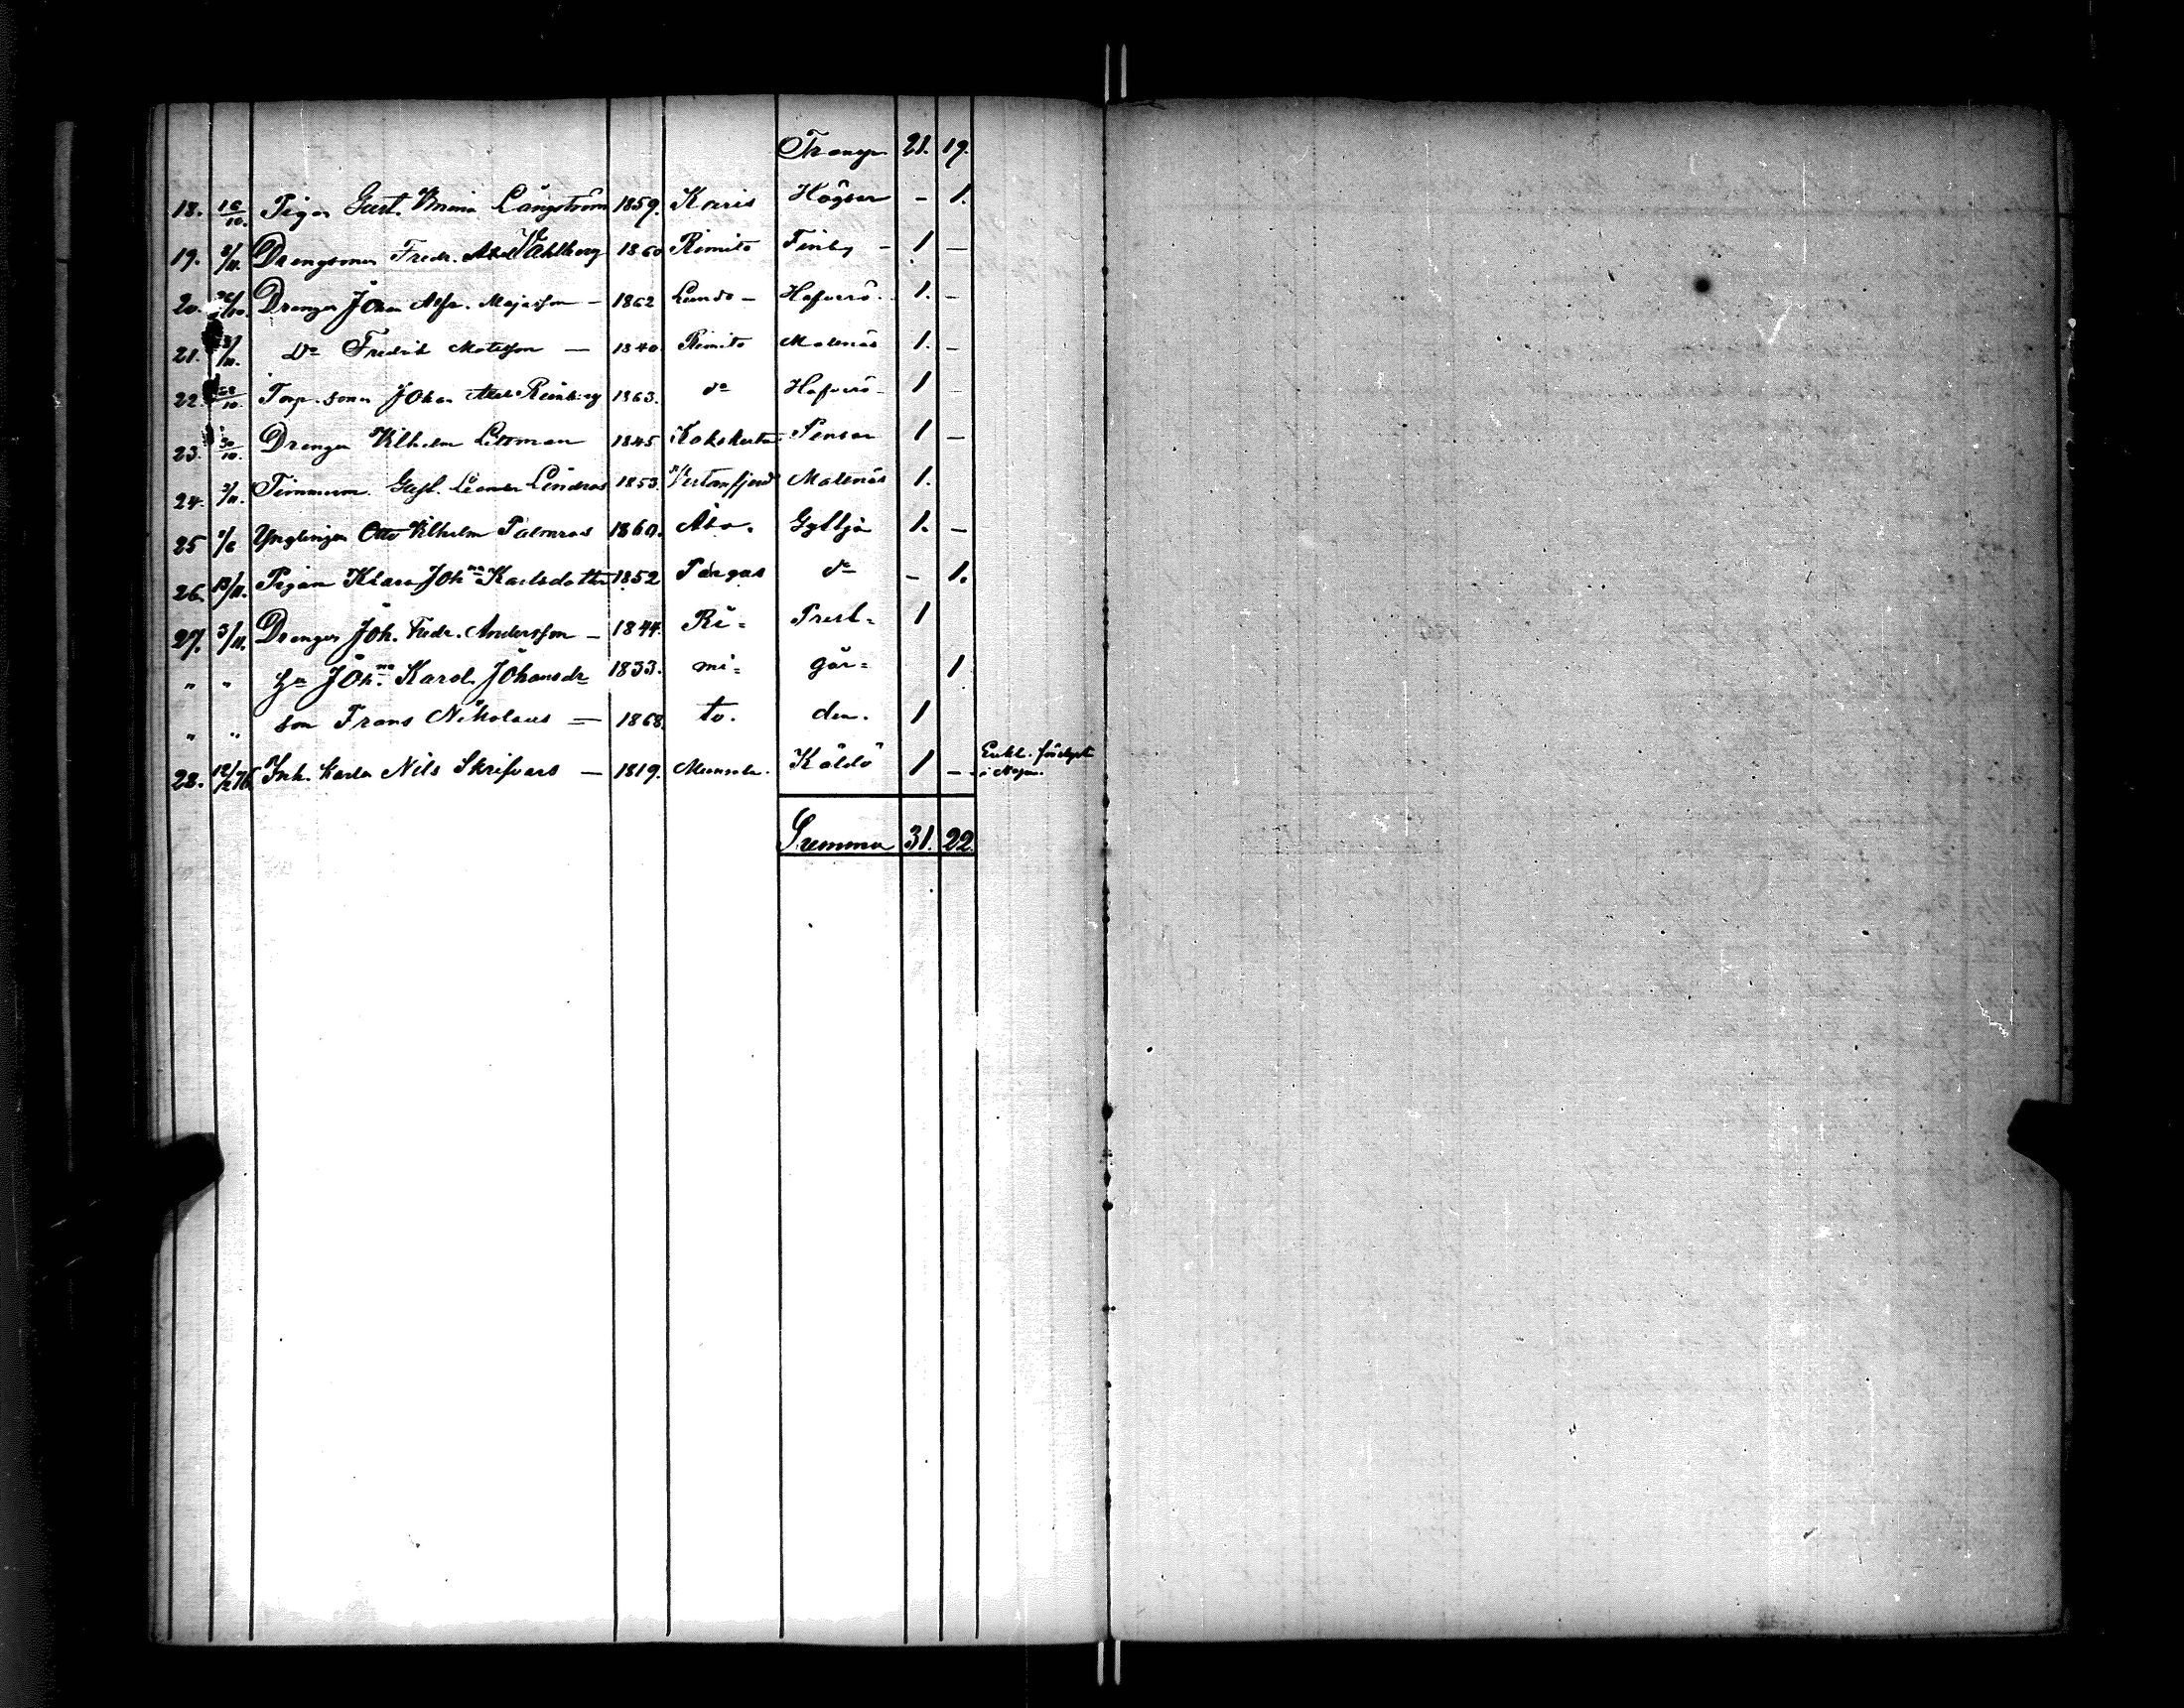 Transp. 21. 19.
18. 16/10. Pigan Gust. Vmina Långström 1859. Karis Högsar - 1.
19. 2/11. Drengsonen Fredr. Axel Vahlberg 1860 Rimito Finby - 1 -
20. 26/10. Drengen Johan Alfr. Majasson - 1862 Lundo - Hafverö. 1. -
21. 3/11. Do Fredrik Matsson - 1840. Rimito Malmnäs 1. -
22. 10. Torp. sonen Johan Axel Reinberg 1863. do Hafverö - 1 -
23. 30/10. Drengen Vilhelm Litsman 1845 Kakskerta Pensar 1 -
24. 2/11. Timmerm. Gust. Leander Lindroos 1853. Vestanfjerd Malmnäs 1.
25 1/6 Ynglingen Otto Vilhelm Palmroos 1860. Åbo. Gyltjö 1. -
26. 13/11. Pigan Klara Johna Karlsdotter 1852 Pargas do - 1.
27. 3/11. Drengen Joh. Fredr. Andersson - 1844. Ri= Prest= 1
" " Hu Johna Karol. Johansdr 1833. mi= går= 1
" " son Frans Nikolaus = 1868. to. den. 1
28. 12/2 76. Inh. Karlen Nils Skrifvars - 1819. Mumsala. Käldö 1 - Enkl. födgst
i Nagu.
Summa 31. 22.